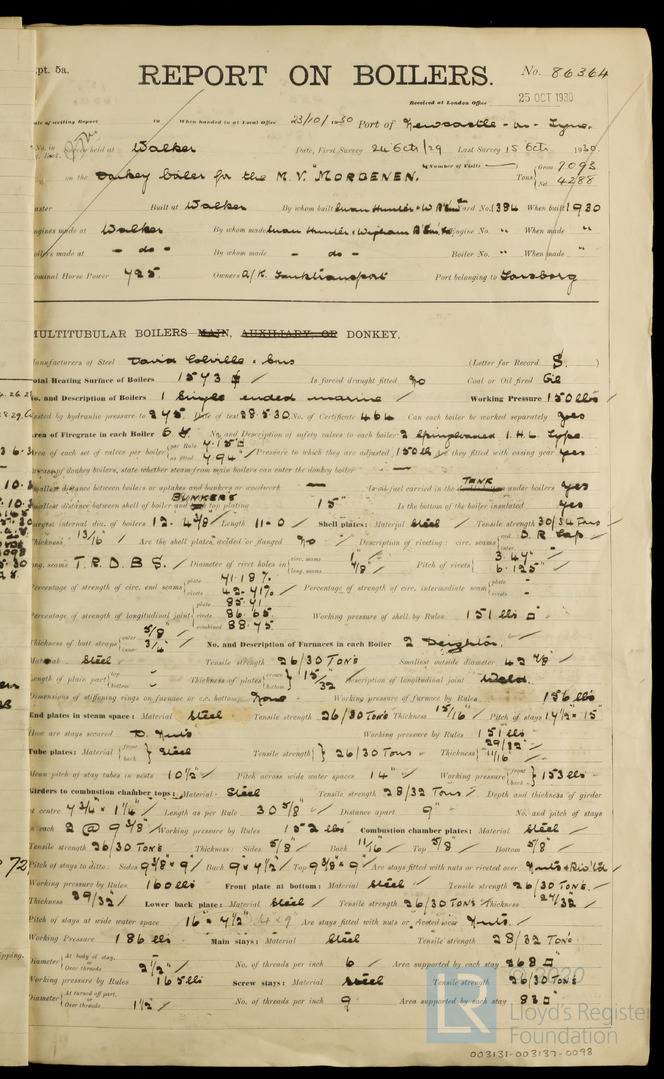 pt. 5a.
REPORT ON BOILERS.
No. 86364
Received at London Office 25 OCT 1930
ate of writing Report 19 When handed in at Local Office 23/10/1930 Port of Newcastle-on-Tyne.
No. in held at Walker Date, First Survey 24 Oct/29 Last Survey 15 Oct 1930
(Number of Visits
on the Donkey boiler for the M.V. "MORGENEN. Tons Gross 7093
Net 4288
aster Built at Walker By whom built Swan Hunter & W R'son Ltd Yard No. 1384 When built 1930
ngines made at Walker By whom made Swan Hunter & Wigham R'son Engine No. " When made "
oilers made at - do - By whom made - do - Boiler No. " When made "
ominal Horse Power 725 Owners A/K. Tanktransport Port belonging to Tonsberg
MULTITUBULAR BOILERS MAIN, AUXILIARY, OR DONKEY.
anufacturers of Steel David Colville & Sons (Letter for Record S. )
Total Heating Surface of Boilers 1573 Is forced draught fitted No Coal or Oil fired Oil
No. and Description of Boilers 1 Single ended marine Working Pressure 150 lbs
ested by hydraulic pressure to 275 Date of test 28.5.30 No. of Certificate 464 Can each boiler be worked separately yes
Area of Firegrate in each Boiler No. and Description of safety valves to each boiler 2 Springloaded I.H.L. Type
Area of each set of valves per boiler per Rule 7.15
as fitted 7.94 Pressure to which they are adjusted 150 lb Are they fitted with easing gear yes
In case of donkey boilers, state whether steam from main boilers can enter the donkey boiler —
mallest distance between boilers or uptakes and bunkers or woodwork — Is oil fuel carried in the TANK under boilers yes
mallest distance between shell of boiler and BUNKERS top plating 15" Is the bottom of the boiler insulated yes
argest internal dia. of boilers 12-4 3/8" Length 11-0 Shell plates: Material Steel Tensile strength 30/34 Tons
Thickness 13/16" Are the shell plates welded or flanged No Description of riveting: circ. seams end D.R. Lap
inter.
ong. seams T.R.D.B.S. Diameter of rivet holes in circ. seams 1"
long. seams 7/8" Pitch of rivets 3.47"
6.125"
ercentage of strength of circ. end seams plate 71.18%
rivets 42.71% Percentage of strength of circ. intermediate seam plate -
rivets -
ercentage of strength of longitudinal joint plate 85.71
rivets 86.65
combined 88.75 Working pressure of shell by Rules 151 lbs
Thickness of butt straps outer 5/8"
inner 3/4" No. and Description of Furnaces in each Boiler 2 Deighton.
Material Steel Tensile strength 26/30 Tons Smallest outside diameter 42 7/8"
Length of plain part top -
bottom - Thickness of plates crown
bottom 15/32 Description of longitudinal joint Weld.
Dimensions of stiffening rings on furnace or c.c. bottom None Working pressure of furnace by Rules 156 lbs
End plates in steam space: Material Steel Tensile strength 26/30 Tons Thickness 15/16" Pitch of stays 17 1/2 x 15"
How are stays secured D. Nuts Working pressure by Rules 151 lbs
Tube plates: Material front
back Steel Tensile strength 26/30 Tons Thickness 29/32"
11/16"
Mean pitch of stay tubes in nests 10 1/2" Pitch across wide water spaces 14" Working pressure front
back 153 lbs
Girders to combustion chamber tops: Material Steel Tensile strength 28/32 Tons Depth and thickness of girder
at centre 7 3/4" x 1 1/4" Length as per Rule 30 5/8" Distance apart 9" No. and pitch of stays
in each 2 @ 9 3/8" Working pressure by Rules 152 lbs Combustion chamber plates: Material Steel
Tensile strength 26/30 Tons Thickness: Sides 5/8" Back 11/16" Top 5/8" Bottom 5/8"
Pitch of stays to ditto: Sides 9 3/8" x 9" Back 9" x 9 1/2" Top 9 3/8" x 9" Are stays fitted with nuts or riveted over Nuts & Riv'td
Working pressure by Rules 160 lbs Front plate at bottom: Material Steel Tensile strength 26/30 Tons.
Thickness 29/32" Lower back plate: Material Steel Tensile strength 26/30 Tons Thickness 27/32
Pitch of stays at wide water space 16" x 9 1/2" Are stays fitted with nuts or riveted over Nuts.
Working Pressure 186 lbs Main stays: Material Steel Tensile strength 28/32 Tons
Diameter At body of stay,
or
Over threads 2 1/2" No. of threads per inch 6 Area supported by each stay 268
Working pressure by Rules 165 lbs Screw stays: Material Steel Tensile strength 26/30 Tons
Diameter At turned off part,
or
Over threads 1 1/2" No. of threads per inch 9 Area supported by each stay 82
© 2020
LR Lloyd's Register
Foundation
003131-003137-0098